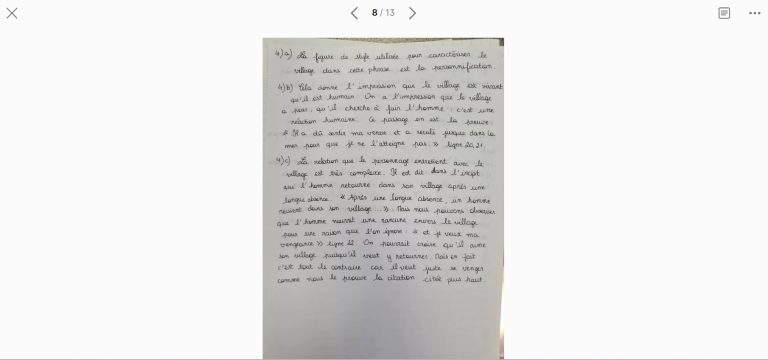 8 / 13
4)a) La figure de style utilisée pour caractériser le
village dans cette phrase est la personnification.
4)b) Cela donne l'impression que le village est vivant
qu'il est humain. On a l'impression que le village
a peur, qu'il cherche à fuir l'homme : c'est une
réaction humaine. Ce passage en est la preuve :
" Il a dû sentir ma venue et a reculé jusque dans la
mer pour que je ne l'atteigne pas. >> ligne 20, 21
4)c) La relation que le personnage entretient avec le
village est très complexe. Il est dit dans l'incipit
que l'homme retourne dans son village après une
longue absence. " Après une longue absence, un homme
revient dans son village... >>. Mais nous pouvons observer
que l'homme nourrit une rancune envers le village
pour une raison que l'on ignore : " et je veux ma
vengeance >> ligne 22. On pourrait croire qu'il aime
son village puisqu'il veut y retourner. Mais en fait
c'est tout le contraire car il veut juste se venger
comme nous le prouve la citation citée plus haut.